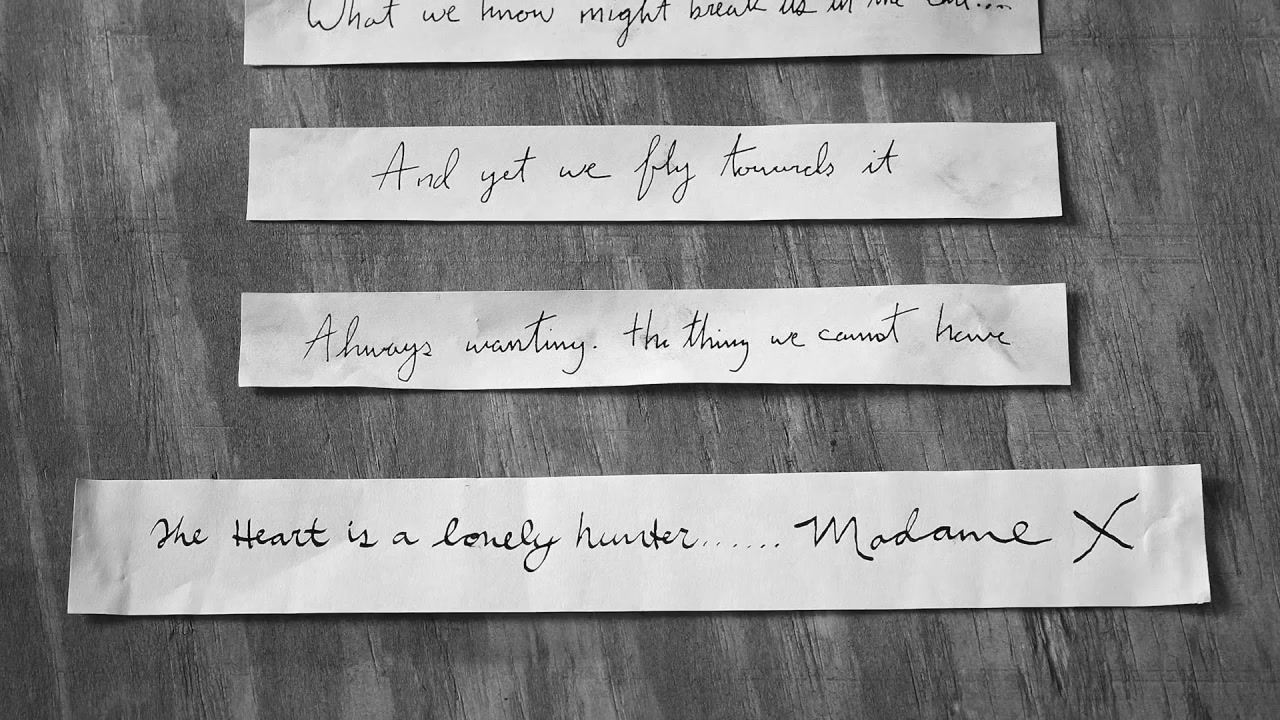 What we know might break us in the end...
And yet we fly towards it
Always wanting. the thing we cannot have
The Heart is a lonely hunter...... Madame X